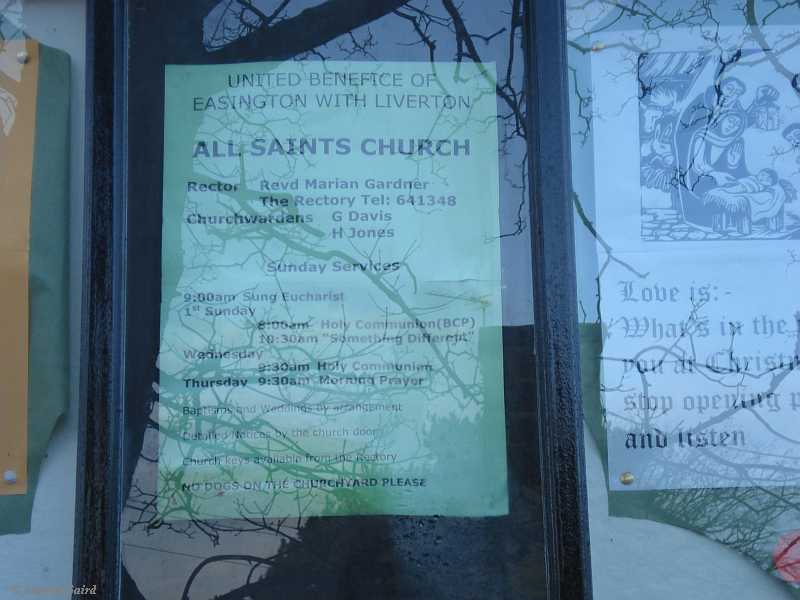 UNITED BENEFICE OF
EASINGTON WITH LIVERTON
ALL SAINTS CHURCH
Rector Revd Marian Gardner
The Rectory Tel: 641348
Churchwardens G Davis
H Jones
Sunday Services
9:00am Sung Eucharist
1st Sunday
8:00am Holy Communion(BCP)
10:30am "Something Different"
Wednesday
9:30am Holy Communion
Thursday 9:30am Morning Prayer
Baptisms and Weddings by arrangement
Detailed Notices by the church door
Church keys available from the Rectory
NO DOGS ON THE CHURCHYARD PLEASE
Love is:-
What's in the
you at Christm
stop opening p
and listen